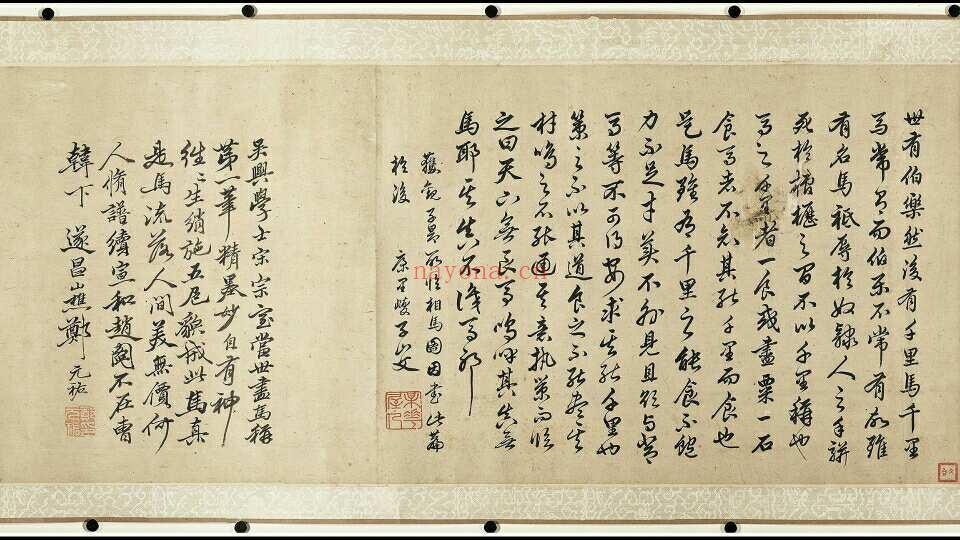 世有伯樂然後有千里馬千里
馬常有而伯樂不常有故雖
有名馬祗辱於奴隸人之手駢
死於槽櫪之間不以千里稱也
馬之千里者一食或盡粟一石
食馬者不知其能千里而食也
是馬雖有千里之能食不飽
力不足才美不外見且欲與常
馬等不可得安求其能千里也
策之不以其道食之不能盡其
材鳴之不能通其意執策而臨
之曰天下無良馬嗚呼其真無
馬耶其真不識馬耶
獲觀子昂所作相馬圖因書此篇
於後 康里巎子山父
吳興學士宋宗室當世畫馬稱
第一筆精墨妙自有神
往往生綃施五尺 此馬真
是馬流落人間美無價何
人脩譜續宣和趙 不在曹
韓下 遂昌山樵鄭
元祐
nayona.cn